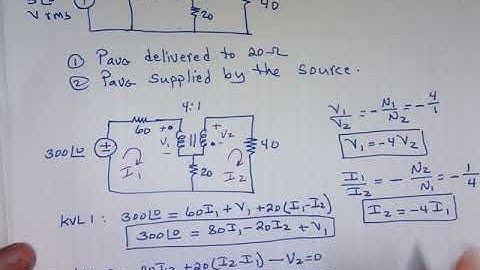 V rms
20
40
① Pavg delivered to 20Ω
② Pavg supplied by the source.
4:1
60
+
V₁
-
+
V₂
-
40
300∠0
I₁
20
I₂
V₁/V₂ = -N₁/N₂ = -4/1
V₁ = -4V₂
I₁/I₂ = -N₂/N₁ = -1/4
I₂ = -4I₁
KVL 1: 300∠0 = 60I₁ + V₁ + 20(I₁-I₂)
300∠0 = 80I₁ - 20I₂ + V₁
+ 20(I₂-I₁) - V₂ = 0